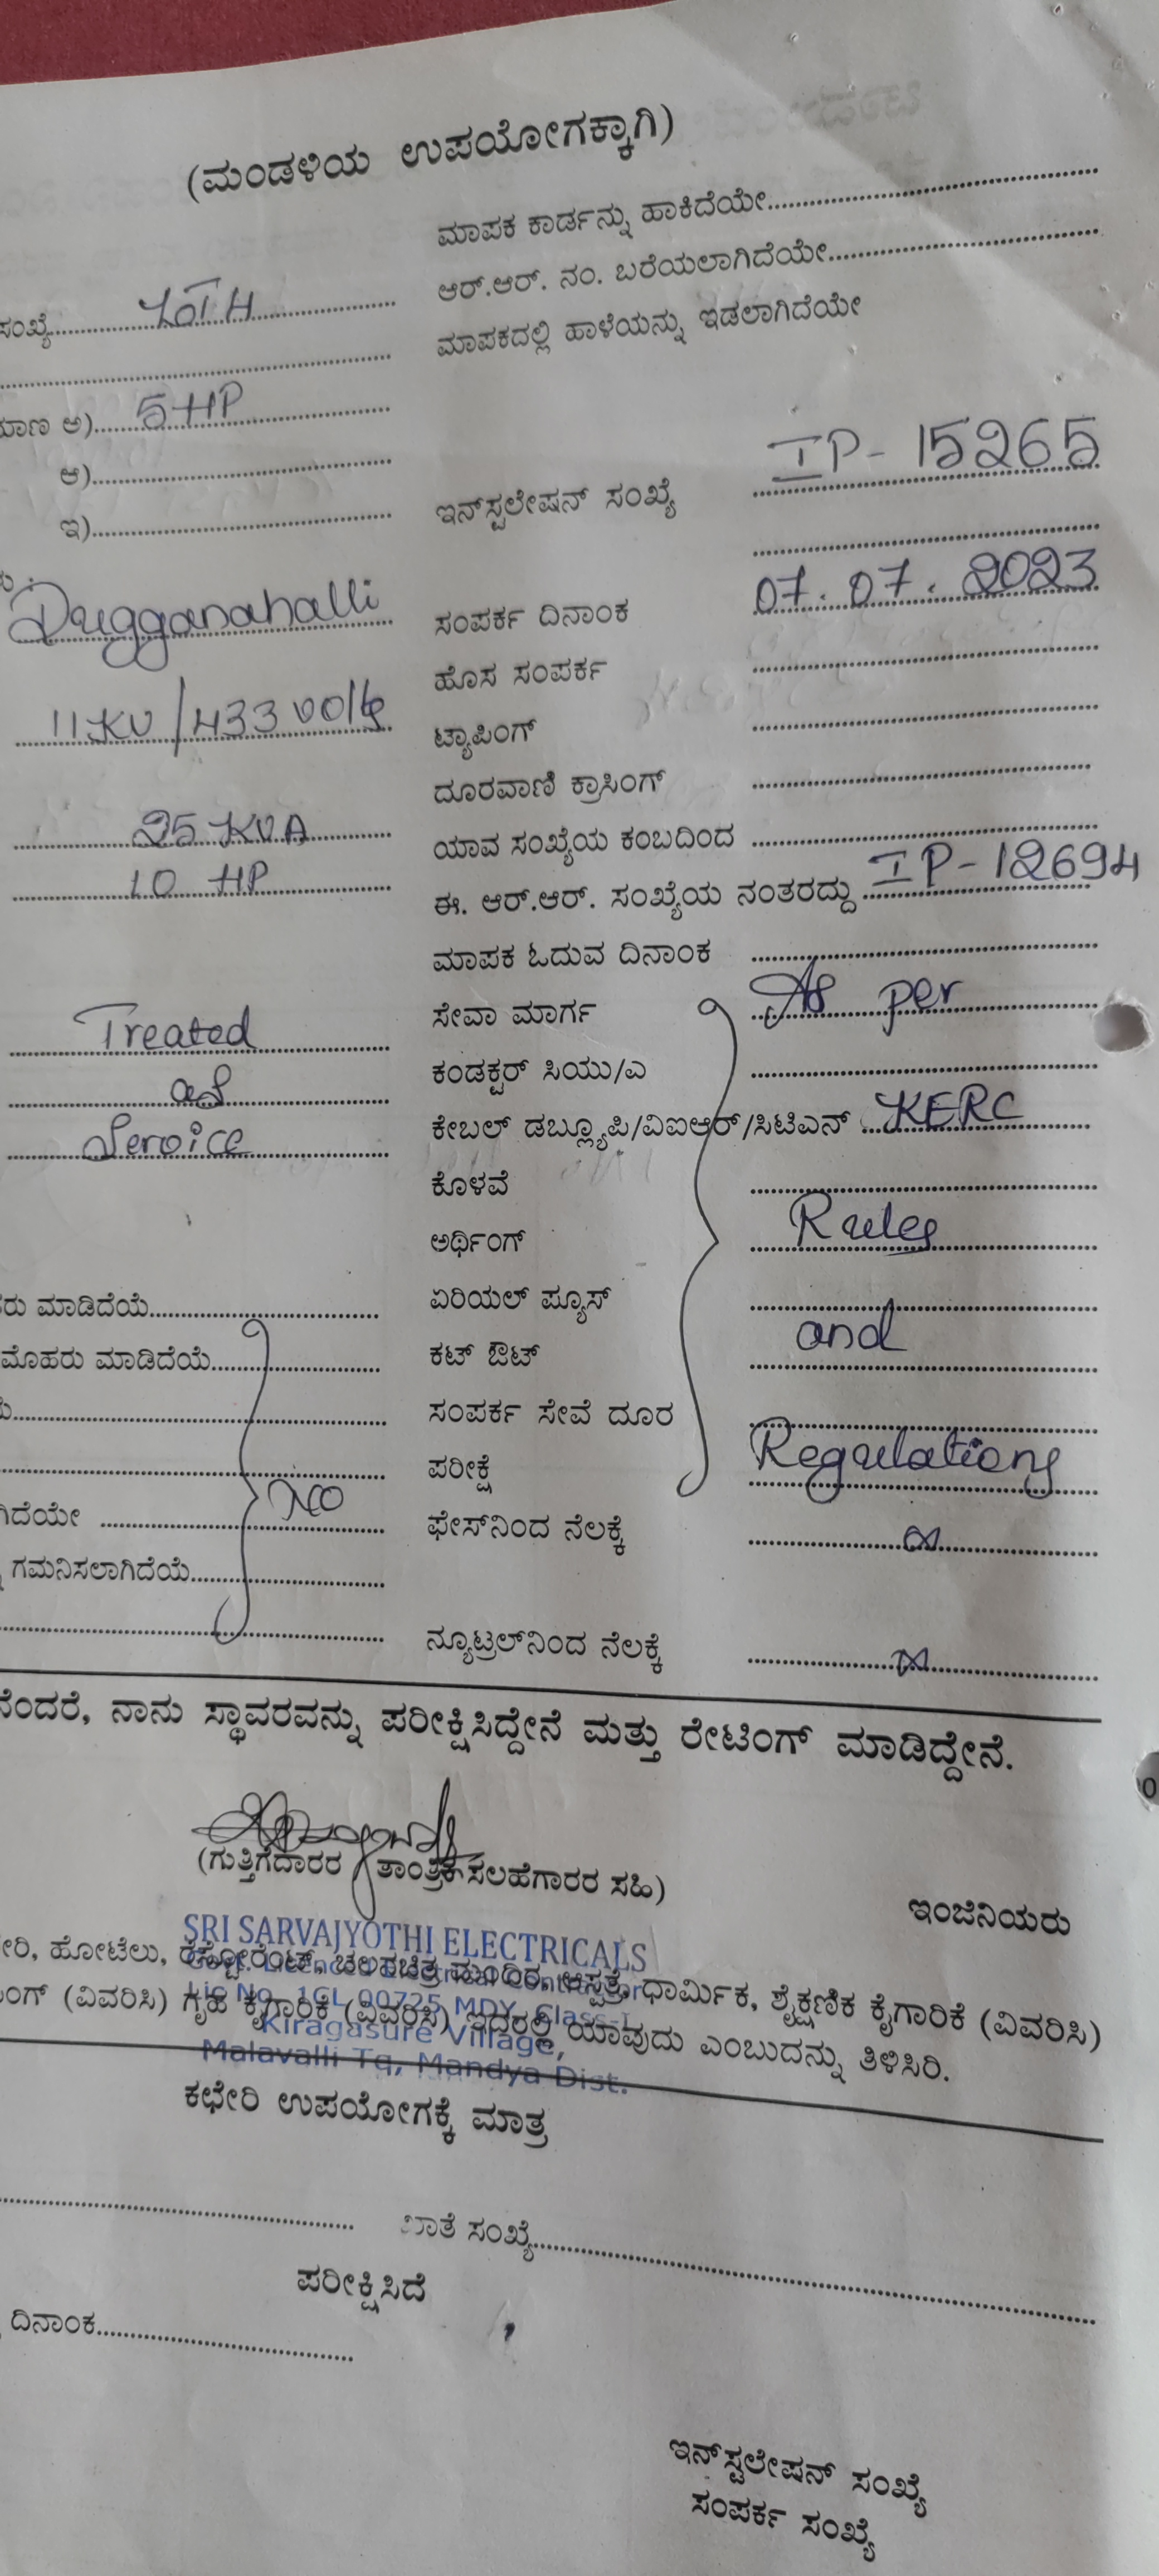 (ಮಂಡಳಿಯ ಉಪಯೋಗಕ್ಕಾಗಿ)
ಮಾಪಕ ಕಾರ್ಡನ್ನು ಹಾಕಿದೆಯೇ
ಆರ್.ಆರ್. ನಂ. ಬರೆಯಲಾಗಿದೆಯೇ
ಸಂಖ್ಯೆ
ಮಾಪಕದಲ್ಲಿ ಹಾಳೆಯನ್ನು ಇಡಲಾಗಿದೆಯೇ
ಅ) 5HP
ಆ)
ಇ)
ಇನ್‌ಸ್ಟಲೇಷನ್ ಸಂಖ್ಯೆ IP-15265
Dugganahalli ಸಂಪರ್ಕ ದಿನಾಂಕ 07.07.2023
ಹೊಸ ಸಂಪರ್ಕ
11KV/433 volts ಟ್ಯಾಪಿಂಗ್
ದೂರವಾಣಿ ಕ್ರಾಸಿಂಗ್
25 KVA ಯಾವ ಸಂಖ್ಯೆಯ ಕಂಬದಿಂದ
10 HP ಈ. ಆರ್.ಆರ್. ಸಂಖ್ಯೆಯ ನಂತರದ್ದು IP-12694
ಮಾಪಕ ಓದುವ ದಿನಾಂಕ
Treated ಸೇವಾ ಮಾರ್ಗ As per
as ಕಂಡಕ್ಟರ್ ಸಿಯು/ಎ
Service ಕೇಬಲ್ ಡಬ್ಲ್ಯೂಪಿ/ವಿಐಆರ್/ಸಿಟಿಎನ್ KERC
ಕೊಳವೆ
ಅರ್ಥಿಂಗ್ Rules
ರು ಮಾಡಿದೆಯೆ ಏರಿಯಲ್ ಫ್ಯೂಸ್
ಮೊಹರು ಮಾಡಿದೆಯೆ ಕಟ್ ಔಟ್ and
ಸಂಪರ್ಕ ಸೇವೆ ದೂರ
ಪರೀಕ್ಷೆ Regulations
ಗಿದೆಯೇ NO ಫೇಸ್‌ನಿಂದ ನೆಲಕ್ಕೆ ∞
ಗಮನಿಸಲಾಗಿದೆಯೆ
ನ್ಯೂಟ್ರಲ್‌ನಿಂದ ನೆಲಕ್ಕೆ ∞
ನೆಂದರೆ, ನಾನು ಸ್ಥಾವರವನ್ನು ಪರೀಕ್ಷಿಸಿದ್ದೇನೆ ಮತ್ತು ರೇಟಿಂಗ್ ಮಾಡಿದ್ದೇನೆ.
(ಗುತ್ತಿಗೆದಾರರ ತಾಂತ್ರಿಕ ಸಲಹೆಗಾರರ ಸಹಿ)
ಇಂಜಿನಿಯರು
SRI SARVAJYOTHI ELECTRICALS
ೇರಿ, ಹೋಟೆಲು, ರೆಸ್ಟೋರೆಂಟ್, ಚಲನಚಿತ್ರ ಮಂದಿರ, ಆಸ್ಪತ್ರೆ, ಧಾರ್ಮಿಕ, ಶೈಕ್ಷಣಿಕ ಕೈಗಾರಿಕೆ (ವಿವರಿಸಿ)
Lic No. 1CL 00725 MDY, Class-I
ಂಗ್ (ವಿವರಿಸಿ) ಗೃಹ ಕೈಗಾರಿಕೆ (ವಿವರಿಸಿ) ಇದರಲ್ಲಿ ಯಾವುದು ಎಂಬುದನ್ನು ತಿಳಿಸಿರಿ.
Kiragasure Village,
Malavalli Tq, Mandya Dist.
ಕಛೇರಿ ಉಪಯೋಗಕ್ಕೆ ಮಾತ್ರ
ಖಾತೆ ಸಂಖ್ಯೆ
ಪರೀಕ್ಷಿಸಿದೆ
ದಿನಾಂಕ
ಇನ್‌ಸ್ಟಲೇಷನ್ ಸಂಖ್ಯೆ
ಸಂಪರ್ಕ ಸಂಖ್ಯೆ